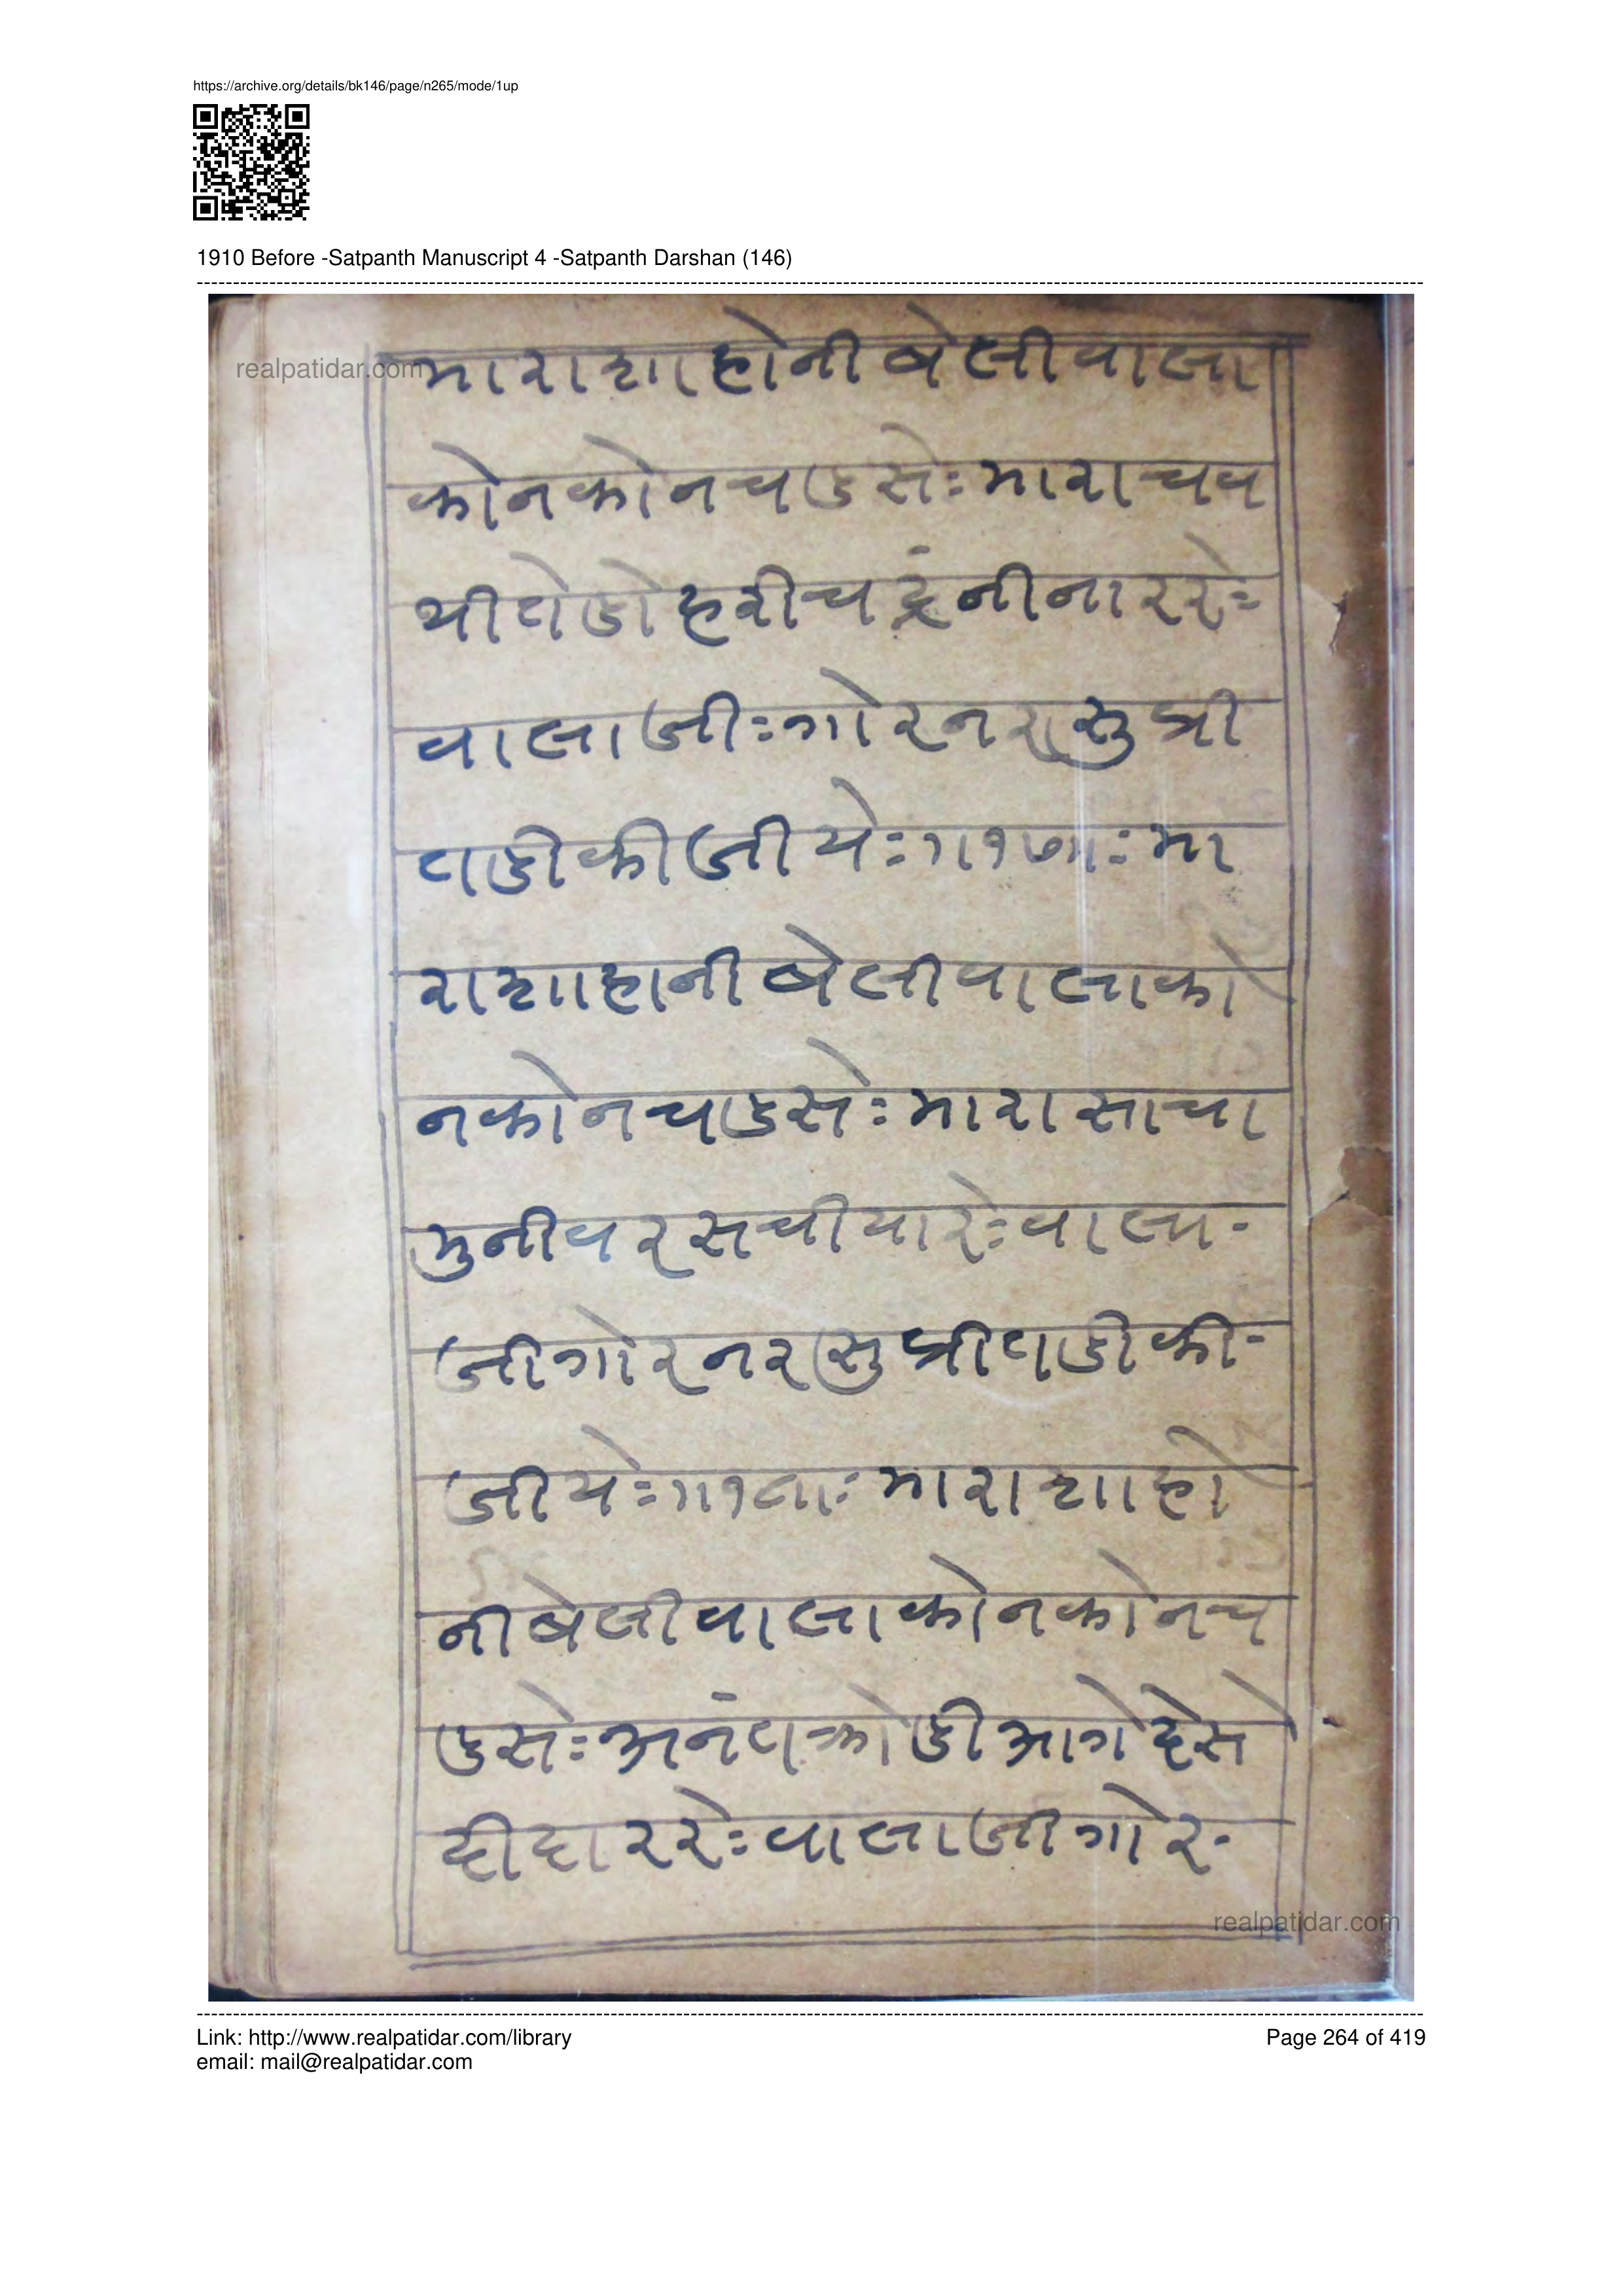 https://archive.org/details/bk146/page/n265/mode/1up
1910 Before -Satpanth Manuscript 4 -Satpanth Darshan (146)
realpatidar.com
माराशाहोनीबेलीवाला
कोनकोनचडसेः माराचव
थीतोडोहरीचद्रंनीनाररेः
वालाजीः गोरनरासुप्री
तडीकीजीयेः ॥१७॥ः मा
राशाहानीबेलीवालाको
नकोनचडसेः मारासाचा
मुनीवरसचीयारेः वाला-
जीगोरनरसुप्रीतडीकी-
जीयेः ॥१८॥ः माराशाहो
नीबेलीवालाकोनकोनच
डसेः अनंतक्रोडीआगेदेसे
दीदाररेः वालाजीगोर-
realpatidar.com
Link: http://www.realpatidar.com/library
Page 264 of 419
email: mail@realpatidar.com